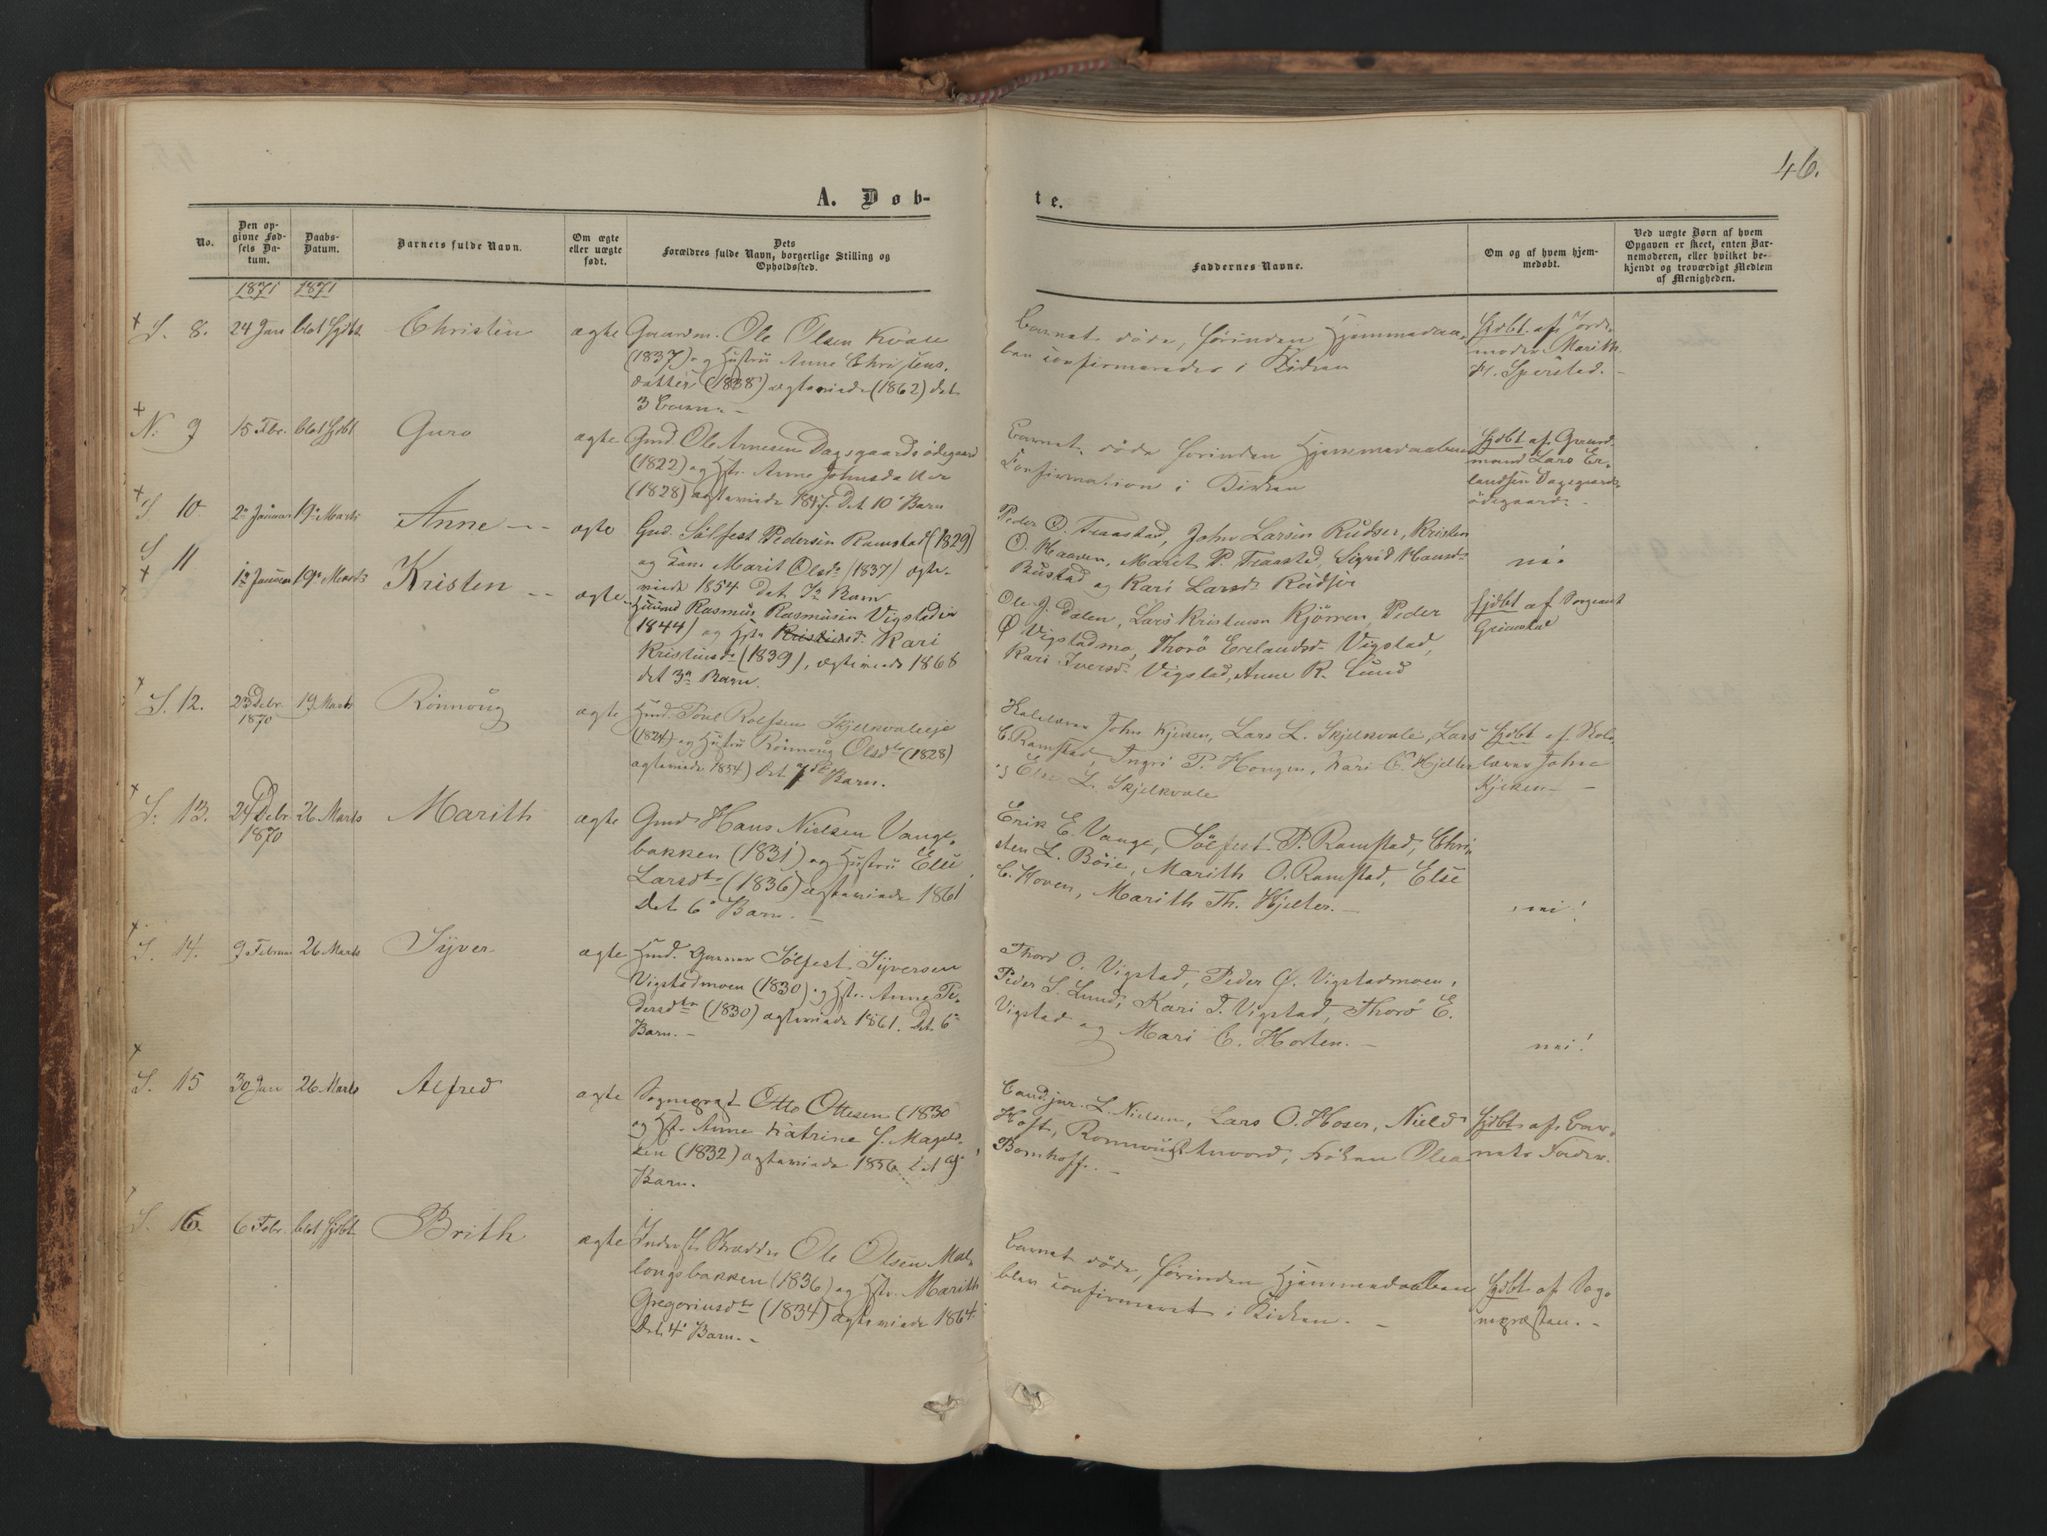 46.
A. Døb-
te.
No.
Den op-
givne Fød-
sels Da-
tum.
Daabs-
Datum.
Barnets fulde Navn.
Om ægte
eller uægte
født.
Dets
Forældres fulde Navn, borgerlige Stilling og
Opholdssted.
Faddernes Navne.
Om og af hvem hjem-
medøbt.
Ved uægte Børn af hvem
Opgaven er skeet, enten Bar-
nemoderen, eller hvilket be-
kjendt og troværdigt Medlem
af Menigheden.
1871 1871
S. 8. 24 Jan blot Hjdbt Christen ægte
Gaardm. Ole Olsen Kvale
(1837) og Hustru Anne Christens-
datter (1838) ægteviede (1862) det
3 Barn. -
Barnet døde, førinden Hjemmedaa-
ben confirmeredes i Kirken
Hjdbt af Jorde-
moder Marith
H. Sperstad. -
N. 9 15 Fbr. blot Hjdbt Guro ægte
Gmd. Ole Arnesen Dagsgaardsødegaard
(1822) og Hstr. Anne Johnsdatter
(1828) ægteviede 1847. Det 10' Barn
Barnet døde førinden Hjemmedaabens
Confirmation i Kirken
Hjdbt af Gaard-
mand Lars Er-
landsen Dagsgaards-
ødegaard. -
S 10. 2n Januar 19n Marts Anne - - ægte
Gmd. Sølfest Pedersen Ramstad (1829)
og Marit Olsdr (1837) ægte-
viede 1854 det 7n Barn
Peder O. Traastad, John Larsen Rudser, Kristen
O. Haaven, Maret P. Traastad, Sigrid Hansdr
Bustad og Kari Larsdr Rudsør
nei
S 11 1n Januar 19n Marts Kristen - - ægte
Huusmd Rasmus Rasmusen Vigstadeie
(1844) og Hstr Kari
Kristensdr (1839), ægteviede 1868
det 3n Barn.
Ole J. Dalen, Lars Kristensen Kjørren, Peder
Ø Vigstadmo, Thorø Erlandsdr Vigstad,
Kari Iversdr Vigstad, Anne R. Lund
Hjdbt af Sergeant
Grimstad
S. 12. 23 Debr. 1870 19 Marts Rønnoug ægte
Hmd. Poul Rolfsen Skjelkvaleeje
(1824) og Hustru Rønnoug Olsdtr (1828)
ægteviede 1854) Det 7de Barn.
John Kjeken, Lars L. Skjelkvale, Lars
C. Ramstad, Ingri P. Hougen, Kari C. Hjelter
og Else L. Skjelkvale
Hjdbt af Skole-
lærer John
Kjeken -
S. 13. 24 Debr. 1870 26 Marts Marith ægte
Gmd. Hans Nielsen Vange-
bakken (1831) og Hustru Else
Larsdtr (1836) ægteviede 1861.
Det 6' Barn. -
Erik E. Vange, Sølfest P. Ramstad, Chri-
sten L. Bøie, Marith O. Ramstad, Else
C. Hoven, Marith Th. Hjelter. -
nei!
S. 14. 9 Februar 26 Marts Syver ægte
Hmd. Sølfest Syversen
Vigstadmoen (1830) og Hstr. Anne Pe-
dersdtr (1830) ægteviede 1861. Det 6'
Barn. -
Thord O. Vigstad, Peder Ø. Vigstadmoen,
Peder S. Lund, Kari I. Vigstad, Thorø E.
Vigstad og Mari C. Horten. -
nei!
S. 15 30 Jan 26 Marts Alfred ægte
Sogneprest Otto Ottesen (1830
og Hst. Anne Katrine S. Magels-
sen (1832) ægteviede 1856. Det 9',
Barn.
Cand jur. L. Nielsen, Lars O. Hoser, Niels
Hoft, Frøken Olea
Bomhoff. -
Hjdbt af Bar-
nets Fader.
S. 16. 6 Febr. blot Hjdbt Brith ægte
Inderst Ole Olsen Mæ-
longsbakken (1836) og Hstr. Marith
Gregoriusdtr (1834) ægteviede 1864.
Det 4' Barn. -
Barnet døde, førinden Hjemmedaaben
blev confirmeret i Kirken. -
Hjdbt af Sog-
nepræsten. -